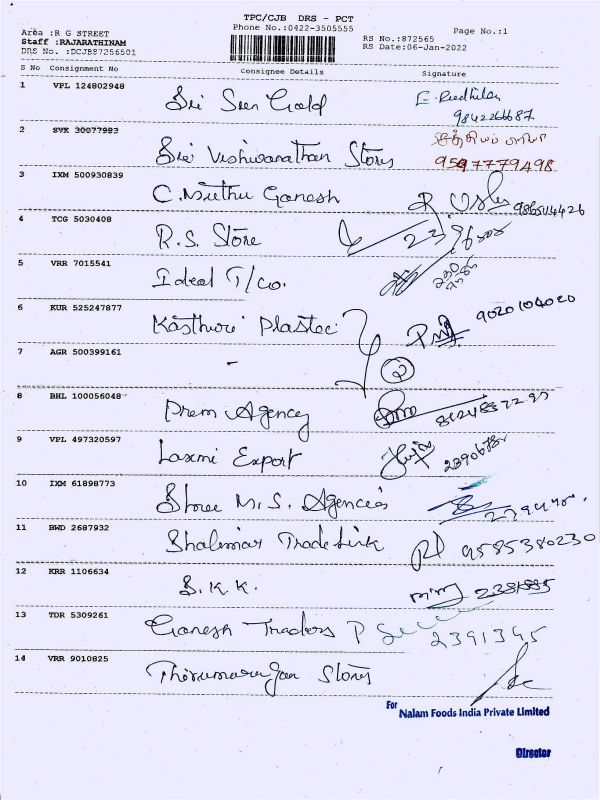 TPC/CJB DRS - PCT
Area :R G STREET
Phone No.:0422-3505555
Page No.:1
Staff :RAJARATHINAM
RS No.:872565
DRS No. :DCJB87256501
RS Date:06-Jan-2022
S No Consignment No Consignee Details Signature
1 VPL 124802948 Sri Sun Gold
9842266687
2 SVK 30077993 Sri Vishwanathan Stores 9597779498
3 IXM 500930839 C. Muthu Ganesh
4 TCG 5030408 R.S. Store
5 VRR 7015541 Ideal T/co.
6 KUR 525247877 Kasthuri Plastec 9020104020
7 AGR 500399161 - 2
8 BHL 100056048 Prem Agency
9 VPL 497320597 Laxmi Export
10 IXM 61898773 Shree M.S. Agencies
11 BWD 2687932 Shalimar Trade Link 9585380230
12 KRR 1106634 S.K.K.
13 TDR 5309261 Ganesh Traders 2391345
14 VRR 9010825 Thirumurugan Stores
For Nalam Foods India Private Limited
Director